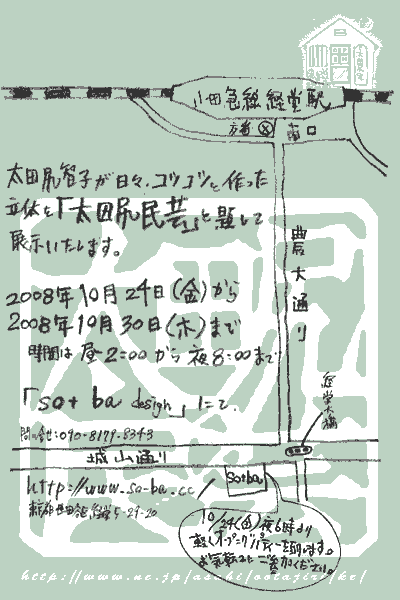 小田急線 経堂駅
交番
南口
太田尻智子が日々、コツコツと作った
立体を「太田尻民芸」と題して
展示いたします。
農大通り
2008年10月24日(金)から
2008年10月30日(木)まで
時間は 昼2:00から夜8:00まで
「so+ba design」にて。
問い合せ:090-8179-8343
城山通り
so+ba
http://www.so-ba.cc
東京都世田谷区経堂5-29-20
10/24(金)夜6時より
軽くオープニングパーティーを開います。
お気軽にご参加ください。